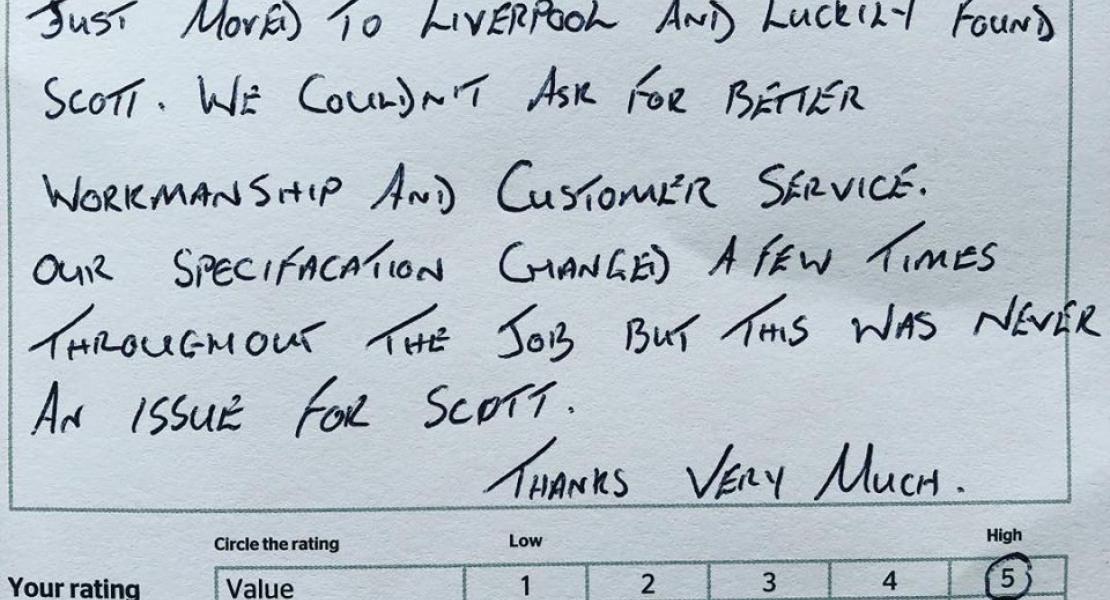 JUST MOVED TO LIVERPOOL AND LUCKILY FOUND
SCOTT. WE COULDN'T ASK FOR BETTER
WORKMANSHIP AND CUSTOMER SERVICE.
OUR SPECIFACATION CHANGED A FEW TIMES
THROUGHOUT THE JOB BUT THIS WAS NEVER
AN ISSUE FOR SCOTT.
THANKS VERY MUCH.
Circle the rating Low High
Your rating Value 1 2 3 4 5